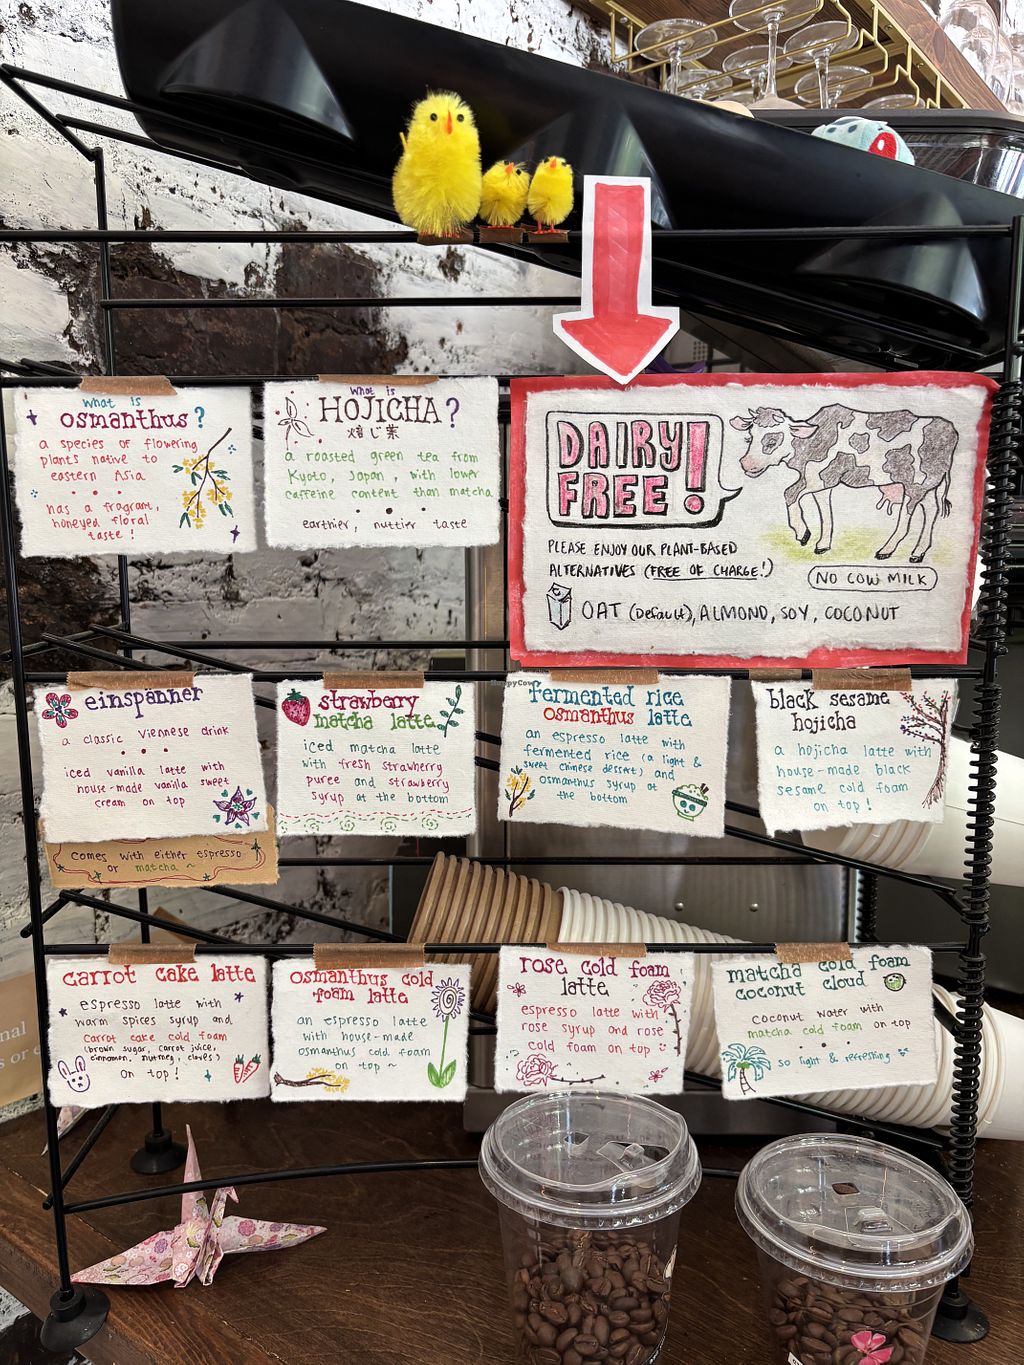 what is
osmanthus?
a species of flowering
plants native to
eastern Asia
has a fragrant,
honeyed floral
taste!
what is
HOJICHA?
焙じ茶
a roasted green tea from
Kyoto, Japan, with lower
caffeine content than matcha
earthier, nuttier taste
DAIRY
FREE!
PLEASE ENJOY OUR PLANT-BASED
ALTERNATIVES (FREE OF CHARGE!)
NO COW MILK
OAT (Default), ALMOND, SOY, COCONUT
einspänner
a classic Viennese drink
iced vanilla latte with
house-made vanilla sweet
cream on top
Comes with either espresso
or matcha ~
strawberry
matcha latte
iced matcha latte
with fresh strawberry
puree and strawberry
syrup at the bottom
fermented rice
osmanthus latte
an espresso latte with
fermented rice (a light &
sweet chinese dessert) and
osmanthus syrup at
the bottom
black sesame
hojicha
a hojicha latte with
house-made black
sesame cold foam
on top!
carrot cake latte
espresso latte with
warm spices syrup and
carrot cake cold foam
(brown sugar, carrot juice,
cinnamon, nutmeg, cloves)
on top!
osmanthus cold
foam latte
an espresso latte
with house-made
osmanthus cold foam
on top ~
rose cold foam
latte
espresso latte with
rose syrup and rose
cold foam on top
matcha cold foam
coconut cloud
coconut water with
matcha cold foam on top
so light & refreshing